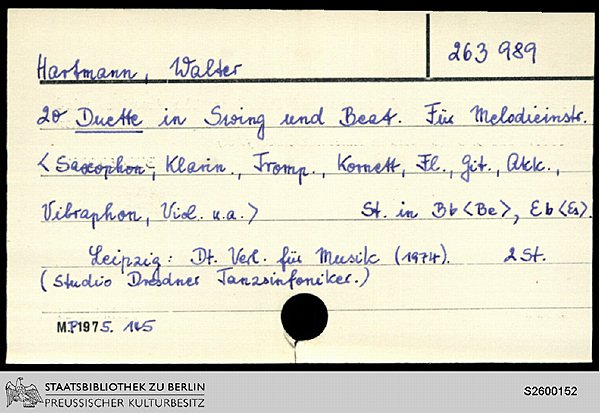 Hartmann, Walter
263 989
20 Duette in Swing und Beat. Für Melodieinstr.
<Saxophon, Klarin., Tromp., Kornett, Fl., Git., Akk.,
Vibraphon, Viol. u.a.> St. in Bb <Be>, Eb <Es>.
Leipzig: Dt. Verl. für Musik (1974). 2 St.
(Studio Dresdner Tanzsinfoniker.)
MP1975. 145
STAATSBIBLIOTHEK ZU BERLIN
PREUSSISCHER KULTURBESITZ
S2600152